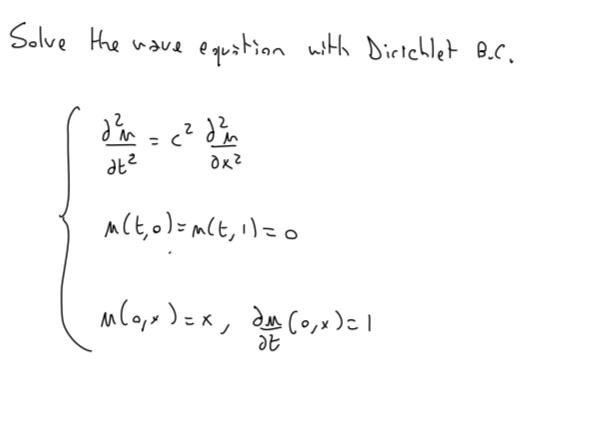 Solve the wave equation with Dirichlet B.C.
∂²u/∂t² = c² ∂²u/∂x²
u(t,0)=u(t,1)=0
u(0,x)=x, ∂u/∂t (0,x)=1